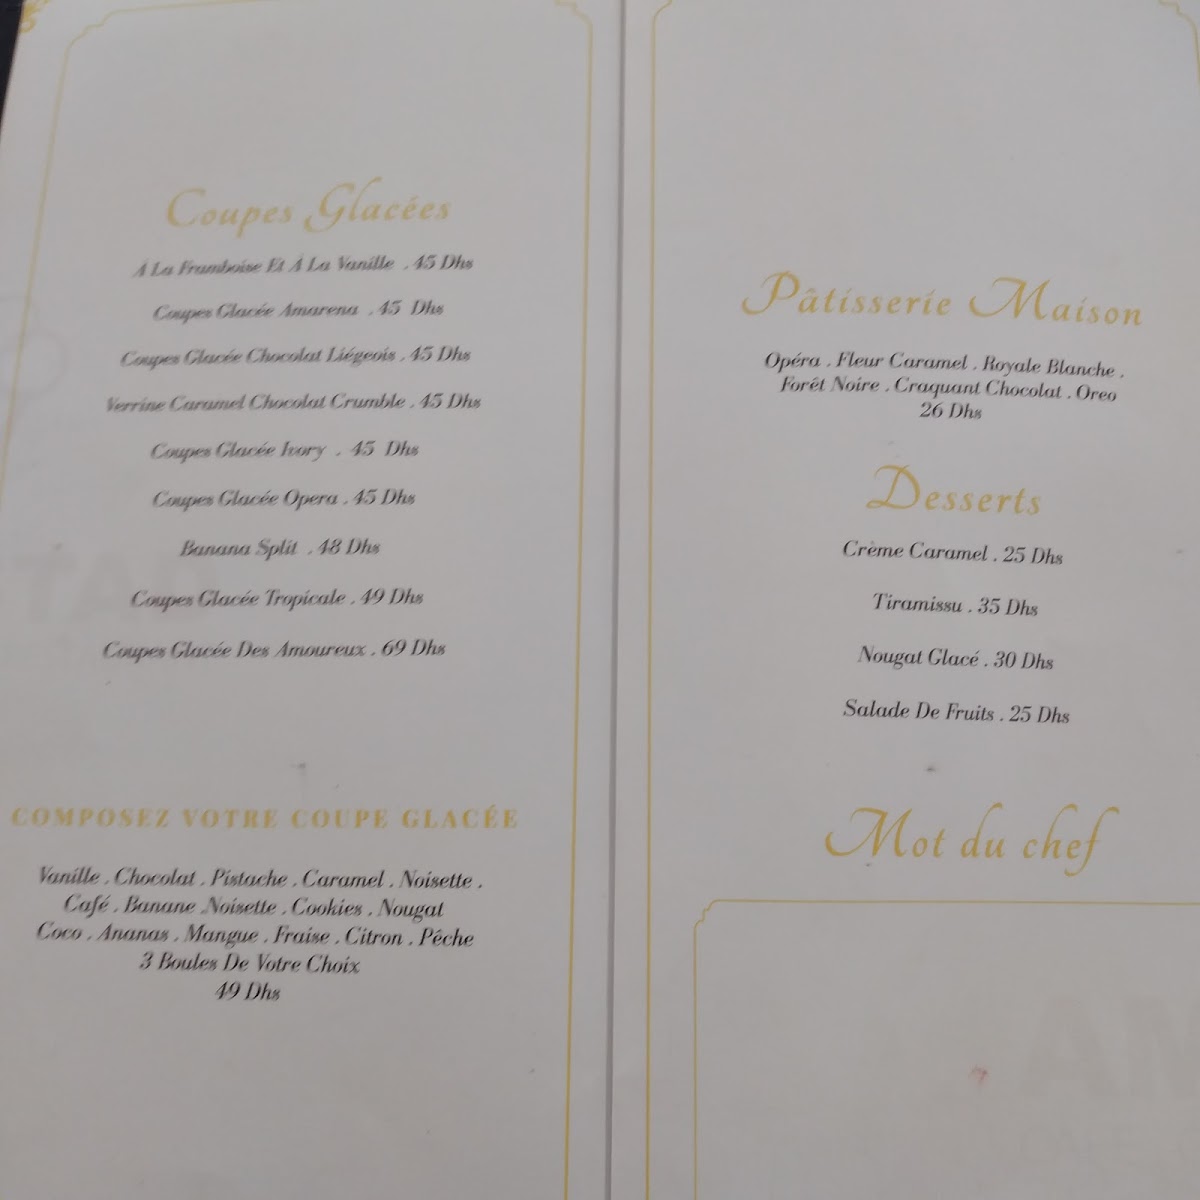 Coupes Glacées
À La Framboise Et À La Vanille . 45 Dhs
Coupes Glacée Amarena . 45 Dhs
Coupes Glacée Chocolat Liégeois . 45 Dhs
Verrine Caramel Chocolat Crumble . 45 Dhs
Coupes Glacée Ivory . 45 Dhs
Coupes Glacée Opera . 45 Dhs
Banana Split . 48 Dhs
Coupes Glacée Tropicale . 49 Dhs
Coupes Glacée Des Amoureux . 69 Dhs
COMPOSEZ VOTRE COUPE GLACÉE
Vanille . Chocolat . Pistache . Caramel . Noisette .
Café . Banane .Noisette . Cookies . Nougat
Coco . Ananas . Mangue . Fraise . Citron . Pêche
3 Boules De Votre Choix
49 Dhs
Pâtisserie Maison
Opéra . Fleur Caramel . Royale Blanche .
Forêt Noire . Craquant Chocolat . Oreo
26 Dhs
Desserts
Crème Caramel . 25 Dhs
Tiramissu . 35 Dhs
Nougat Glacé . 30 Dhs
Salade De Fruits . 25 Dhs
Mot du chef